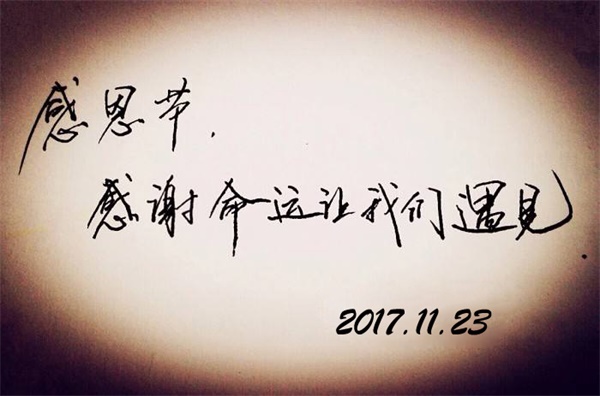 感恩节.
感谢命运让我们遇见.
2017.11.23